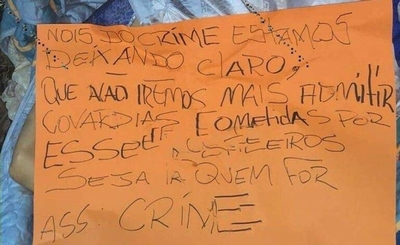 NOIS DO CRIME ESTAMOS
DEIXANDO CLARO,
QUE NÃO IREMOS MAIS ADMITIR
COVARDIAS COMETIDAS POR
ESSE
SEJA QUEM FOR
ASS: CRIME